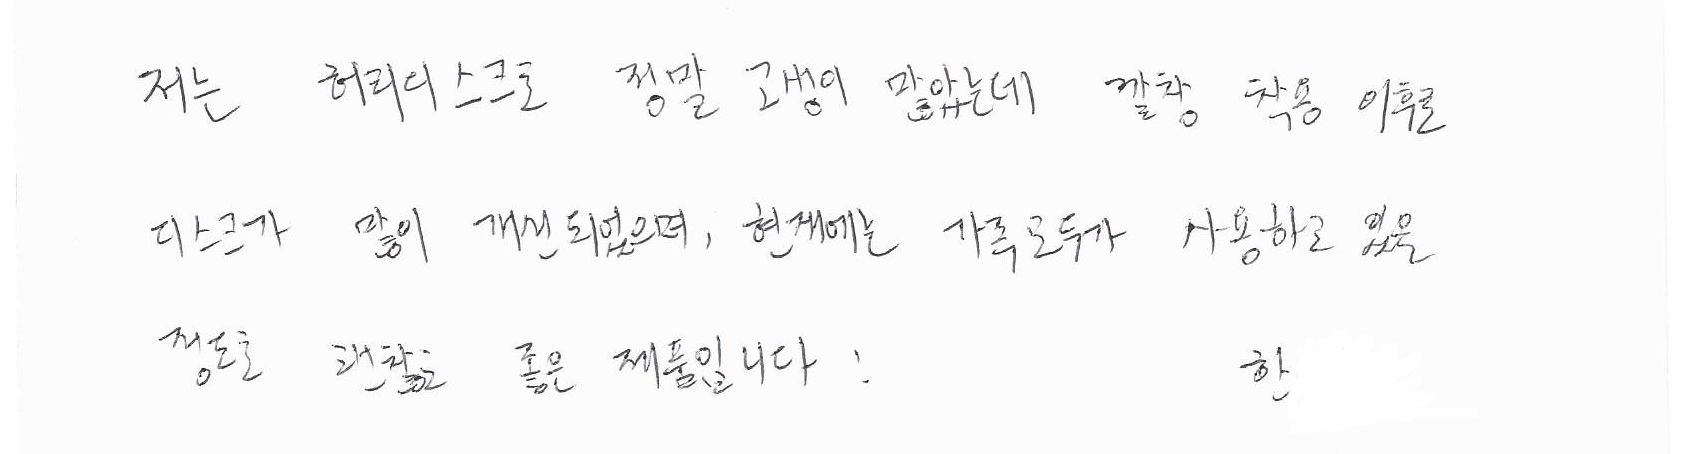 저는 허리디스크로 정말 고생이 많았는데 깔창 착용 이후로
디스크가 많이 개선되었으며, 현재에는 가족모두가 사용하고 있을
정도로 괜찮고 좋은 제품입니다! 한